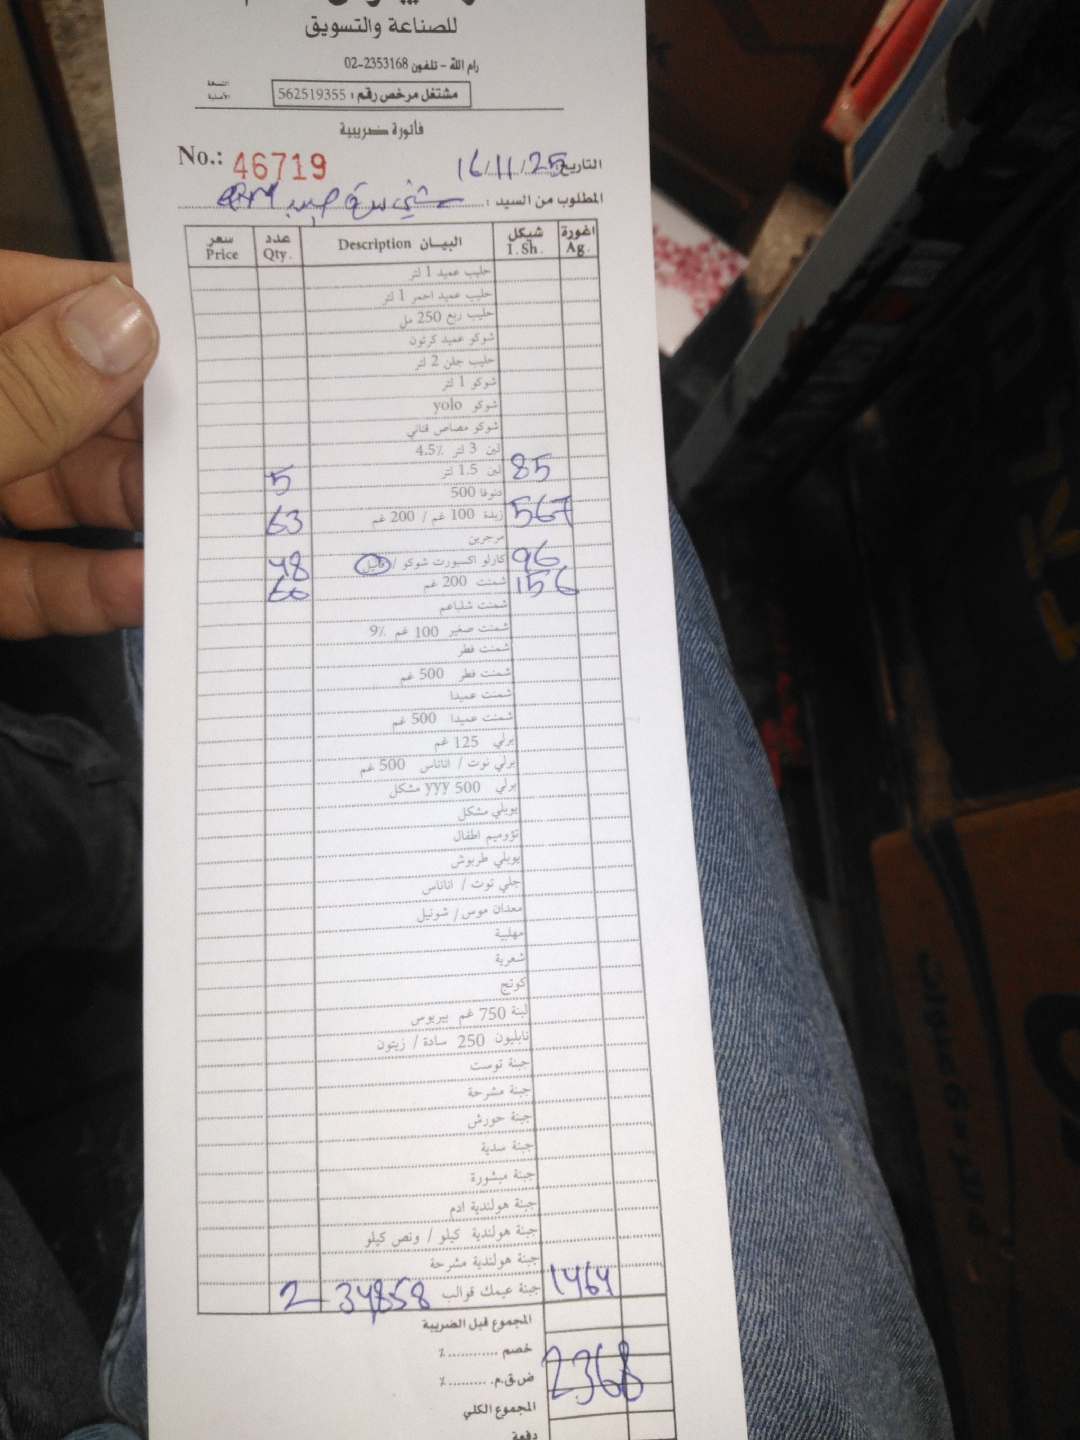 للصناعة والتسويق
رام الله - تلفون 02-2353168
النسخة الأصلية
مشتغل مرخص رقم: 562519355
فاتورة ضريبية
No.: 46719
التاريخ: 16/11/25
المطلوب من السيد:
سعر Price عدد Qty. البيــان Description شيكل I.Sh. اغورة Ag.
حليب عميد 1 لتر
حليب عميد احمر 1 لتر
حليب ربع 250 مل
شوكو عميد كرتون
حليب جلن 2 لتر
شوكو 1 لتر
شوكو yolo
شوكو مصاص قناني
لبن 3 لتر 4.5٪
5 لبن 1.5 لتر 85
دنوفا 500
63 زبدة 100 غم / 200 غم 567
مرجرين
48 كارلو اكسبورت شوكو / فانيل 96
60 شمنت 200 غم 156
شمنت شلباعم
شمنت صغير 100 غم 9٪
شمنت فطر
شمنت فطر 500 غم
شمنت عميدا
شمنت عميدا 500 غم
برلي 125 غم
برلي توت / اناناس 500 غم
برلي 500 yyy مشكل
يوبلي مشكل
تؤوميم اطفال
يوبلي طربوش
جلي توت / اناناس
معدان موس / شونيل
مهلبية
شعرية
كوتج
لبنة 750 غم بيريوس
نابليون 250 سادة / زيتون
جبنة توست
جبنة مشرحة
جبنة حورش
جبنة سدية
جبنة مبشورة
جبنة هولندية ادم
جبنة هولندية كيلو / ونص كيلو
جبنة هولندية مشرحة
2 34,858 جبنة عيمك قوالب 1464
المجموع قبل الضريبة
خصم ............ ٪
ض.ق.م. ......... ٪ 2368
المجموع الكلي
دفعة